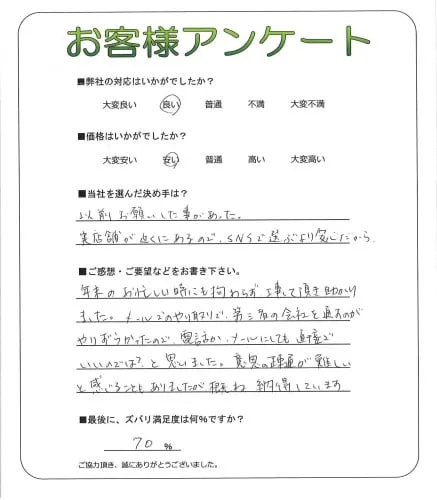 お客様アンケート
■弊社の対応はいかがでしたか?
大変良い 良い 普通 不満 大変不満
■価格はいかがでしたか?
大変安い 安い 普通 高い 大変高い
■当社を選んだ決め手は?
以前お願いした事があった。
実店舗が近くにあるので、SNSで選ぶより安心だから。
■ご感想・ご要望などをお書き下さい。
年末のお忙しい時にも拘わらず工事して頂き助かり
ました。メールでのやり取りで、第三者の会社を通すのが
やりずらかったので、電話か、メールにしても直接で
いいのでは?と思いました。意思の疎通が難しい
と感じることもありましたが概ね納得しています
■最後に、ズバリ満足度は何%ですか?
70 %
ご協力頂き、誠にありがとうございました。